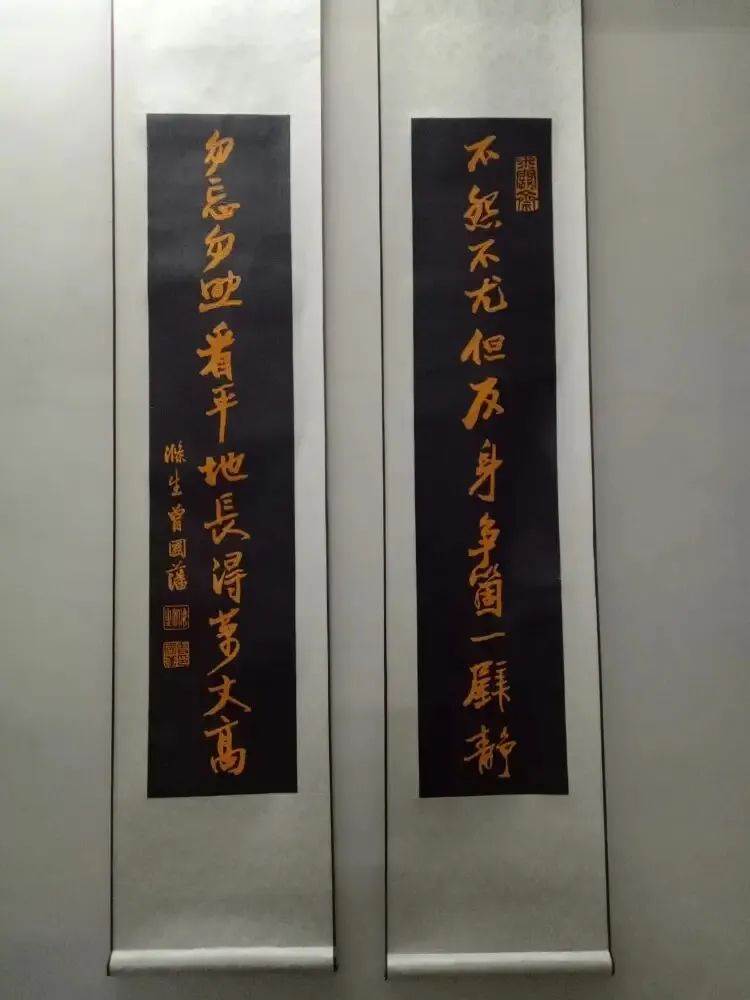 不怨不尤但反身争箇一壁静
勿忘勿助看平地長得萬丈高
滌生曾國藩